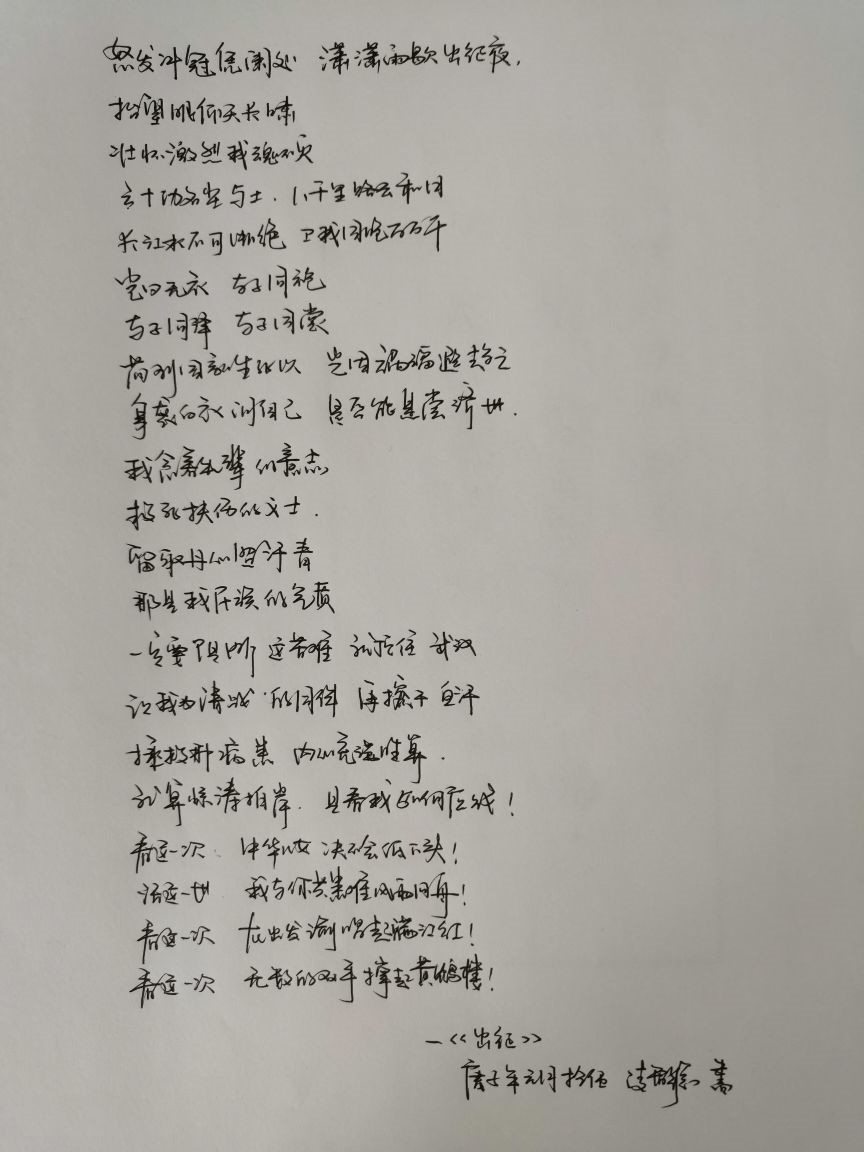 怒发冲冠凭阑处 潇潇雨歇出征夜,
抬望眼仰天长啸
壮怀激烈我魂不灭
三十功名尘与土.八千里路云和月
长江水不可断绝 卫我同胞万万千
岂曰无衣 与子同袍
与子同泽 与子同裳
苟利国家生死以 岂因祸福避趋之
身裹白衣问自己 是否能悬壶济世.
我含前辈的意志
救死扶伤的义士.
留取丹心照汗青
那是我民族的气贯
一定要阻断 这苦难 就守住 武汉
让我为清战 的同伴 再擦干 血汗
择救新病患 内心充满胜算.
就算惊涛拍岸. 且看我如何应战!
看这一次. 中华儿女 决不会低下头!
活这一世 我与你共患难风雨同舟!
看这一次 在出发前唱起满江红!
看这一次 无数的双手撑起黄鹤楼!
—《出征》
庚子年元月拾伍 书